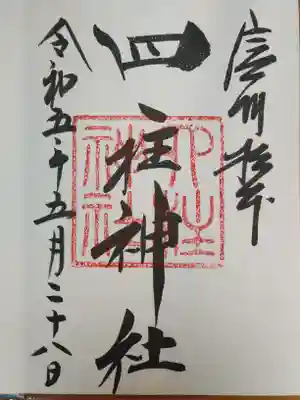 信州松本
四柱神社
令和五年五月二十八日
四柱
神社